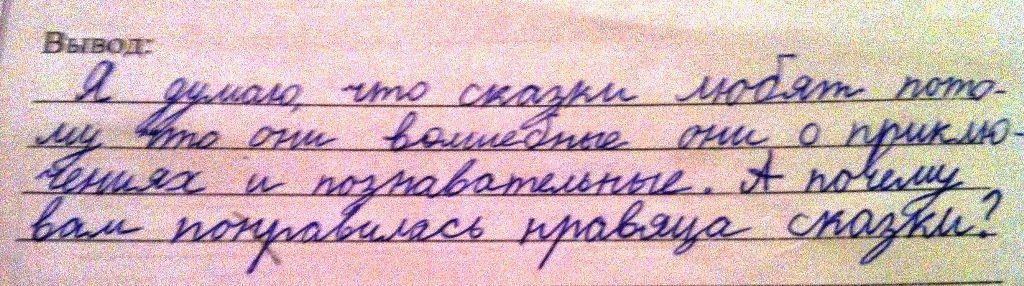 Вывод:
Я думаю, что сказки любят пото-
му что они волшебные они о приклю-
чениях и познавательные. А почему
вам понравилась нравяца сказки?